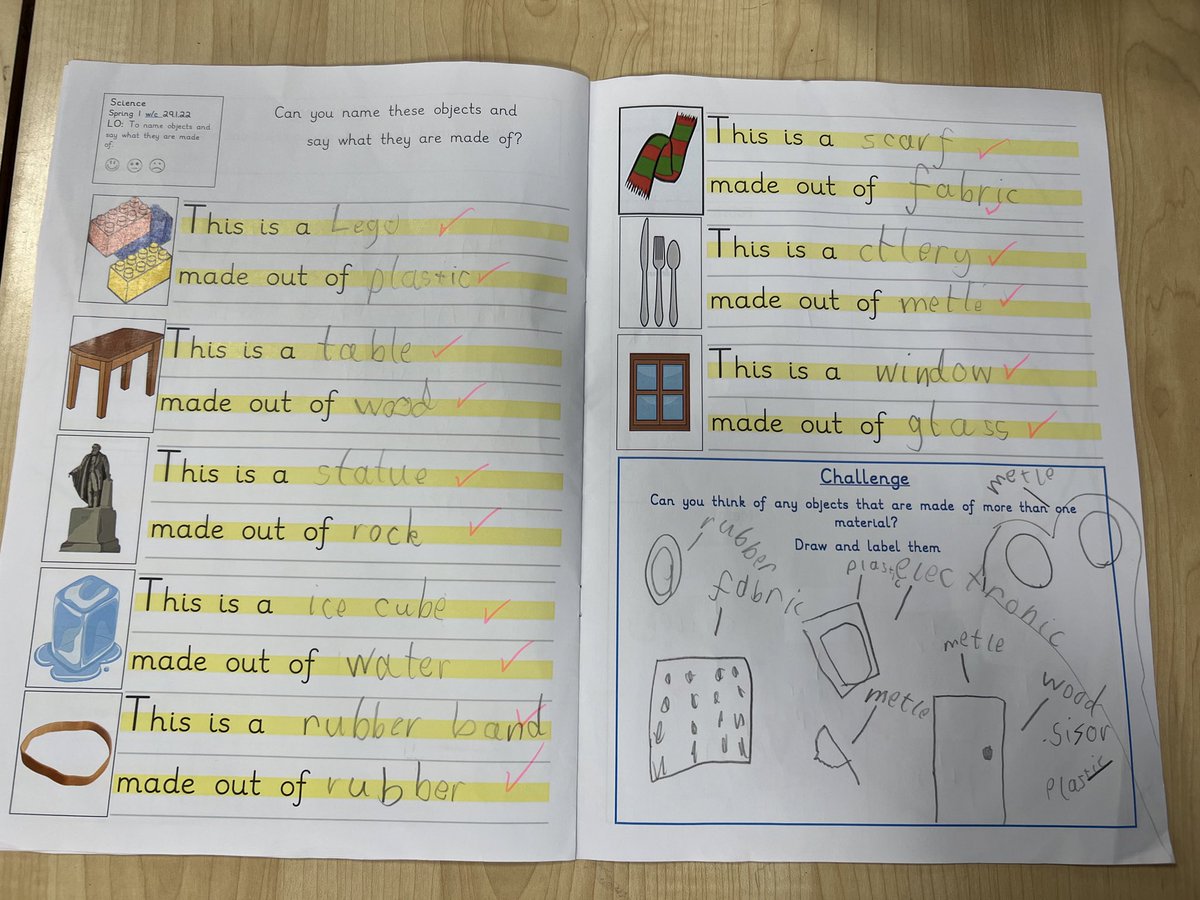 Science
Spring 1 w/c 29.1.22
LO: To name objects and
say what they are made
of.
Can you name these objects and
say what they are made of?
This is a Lego
made out of plastic
This is a table
made out of wood
This is a statue
made out of rock
This is a ice cube
made out of water
This is a rubber band
made out of rubber
This is a scarf
made out of fabric
This is a ctlery
made out of metle
This is a window
made out of glass
Challenge
Can you think of any objects that are made of more than one
material?
Draw and label them
metle
rubber
fabric
plastic
elec
tronic
metle
metle
wood
sisor
plastic